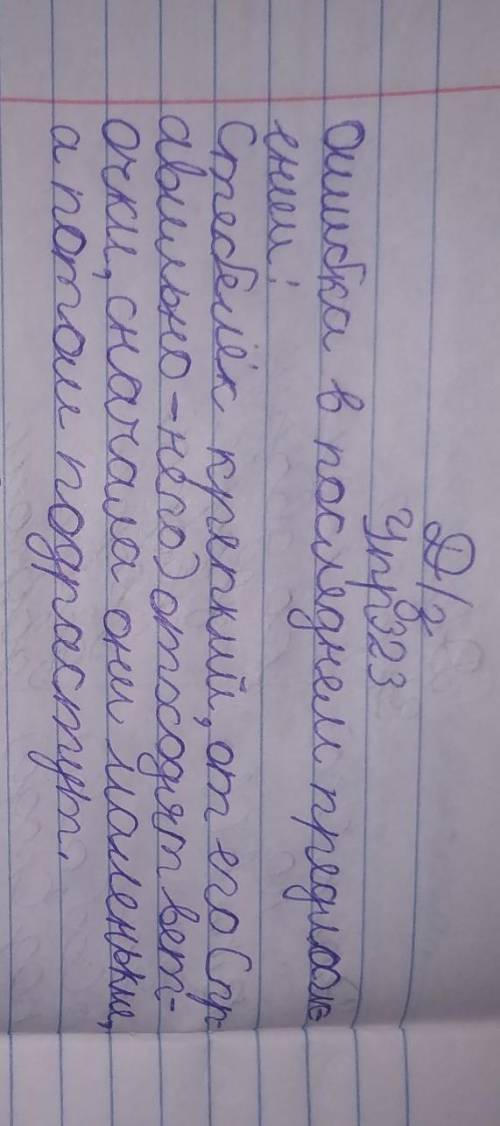 Д/з
Упр323
Ошибка в последнем предлож
ении:
Стебелёк крепкий, от его (пр
авильно - него) отходят вет-
очки, сначала они маленькие,
а потом подрастут.